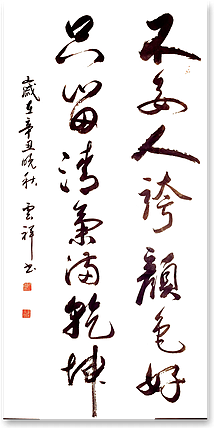 不要人誇顏色好
只留清氣滿乾坤
歲在辛丑晚秋 雲祥书